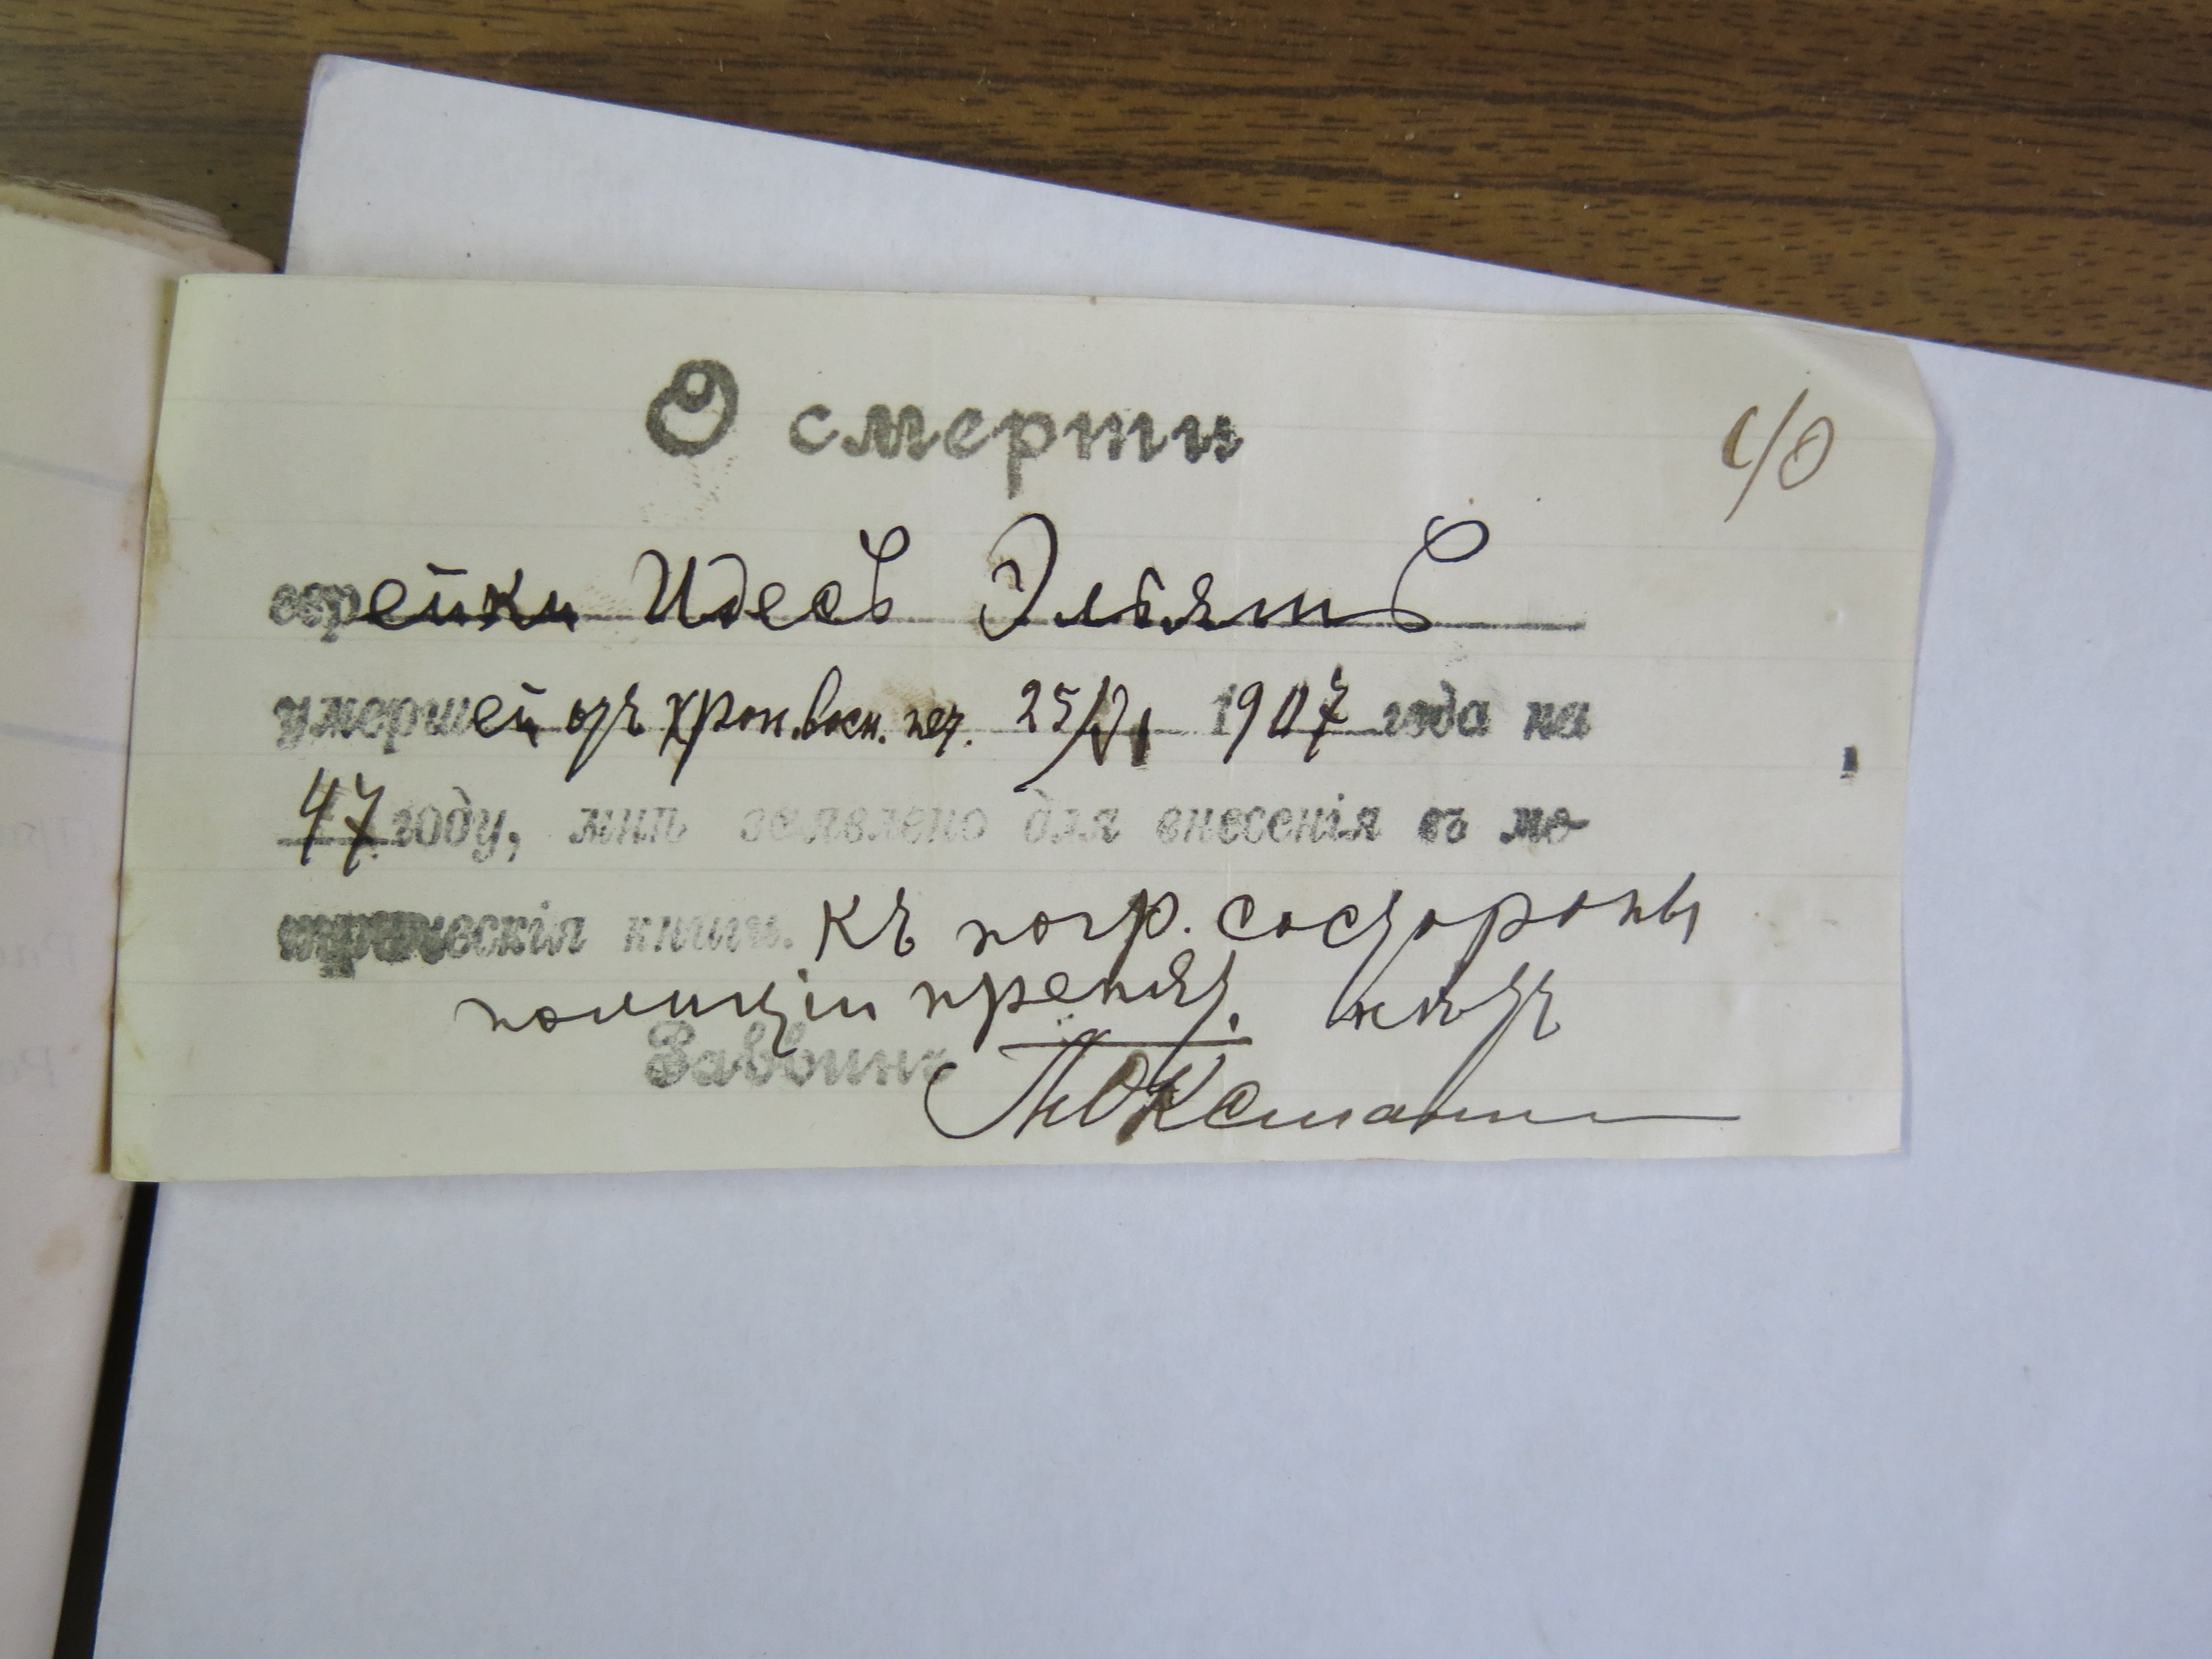 О смерти
40
еврейки Идесъ Эльбятъ
умершей отъ хрон. восп. печ. 25/VI 1907 года на
47 году, мнѣ заявлено для внесенія въ ме-
трическія книги. Къ погр. состороны
полиціи препят. нѣтъ
Раввинъ